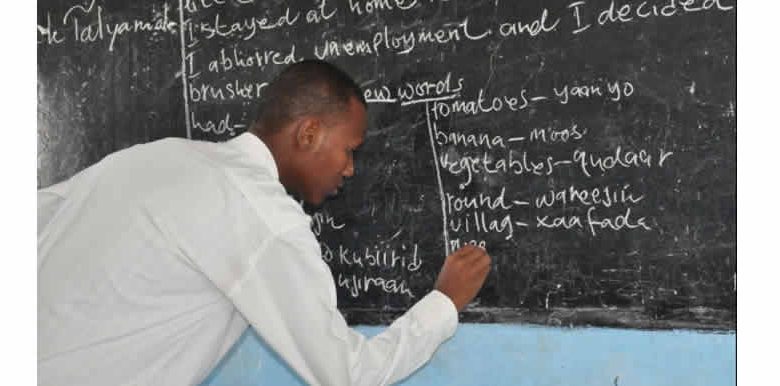 I stayed at home
I abhorred unemployment and I decided
brusher
new words
had-
tomatoes - yaanyo
banana - moos
vegetables - qudaar
round - wareejin
villag - xaafada
kubiirid
ujiraan